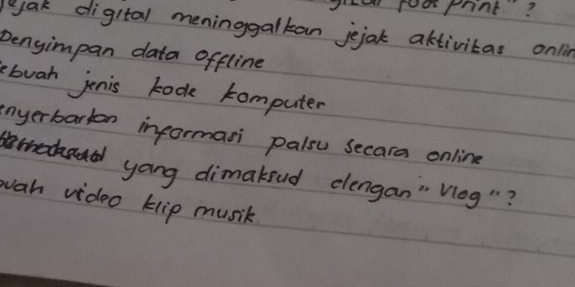 foot print"?
jejak digital meninggalkan jejak aktivitas onlin
Penyimpan data offline
ebuah jenis kode komputer
enyerbarkan informasi palsu secara online
yang dimaksud dengan "Vlog"?
uah video klip musik